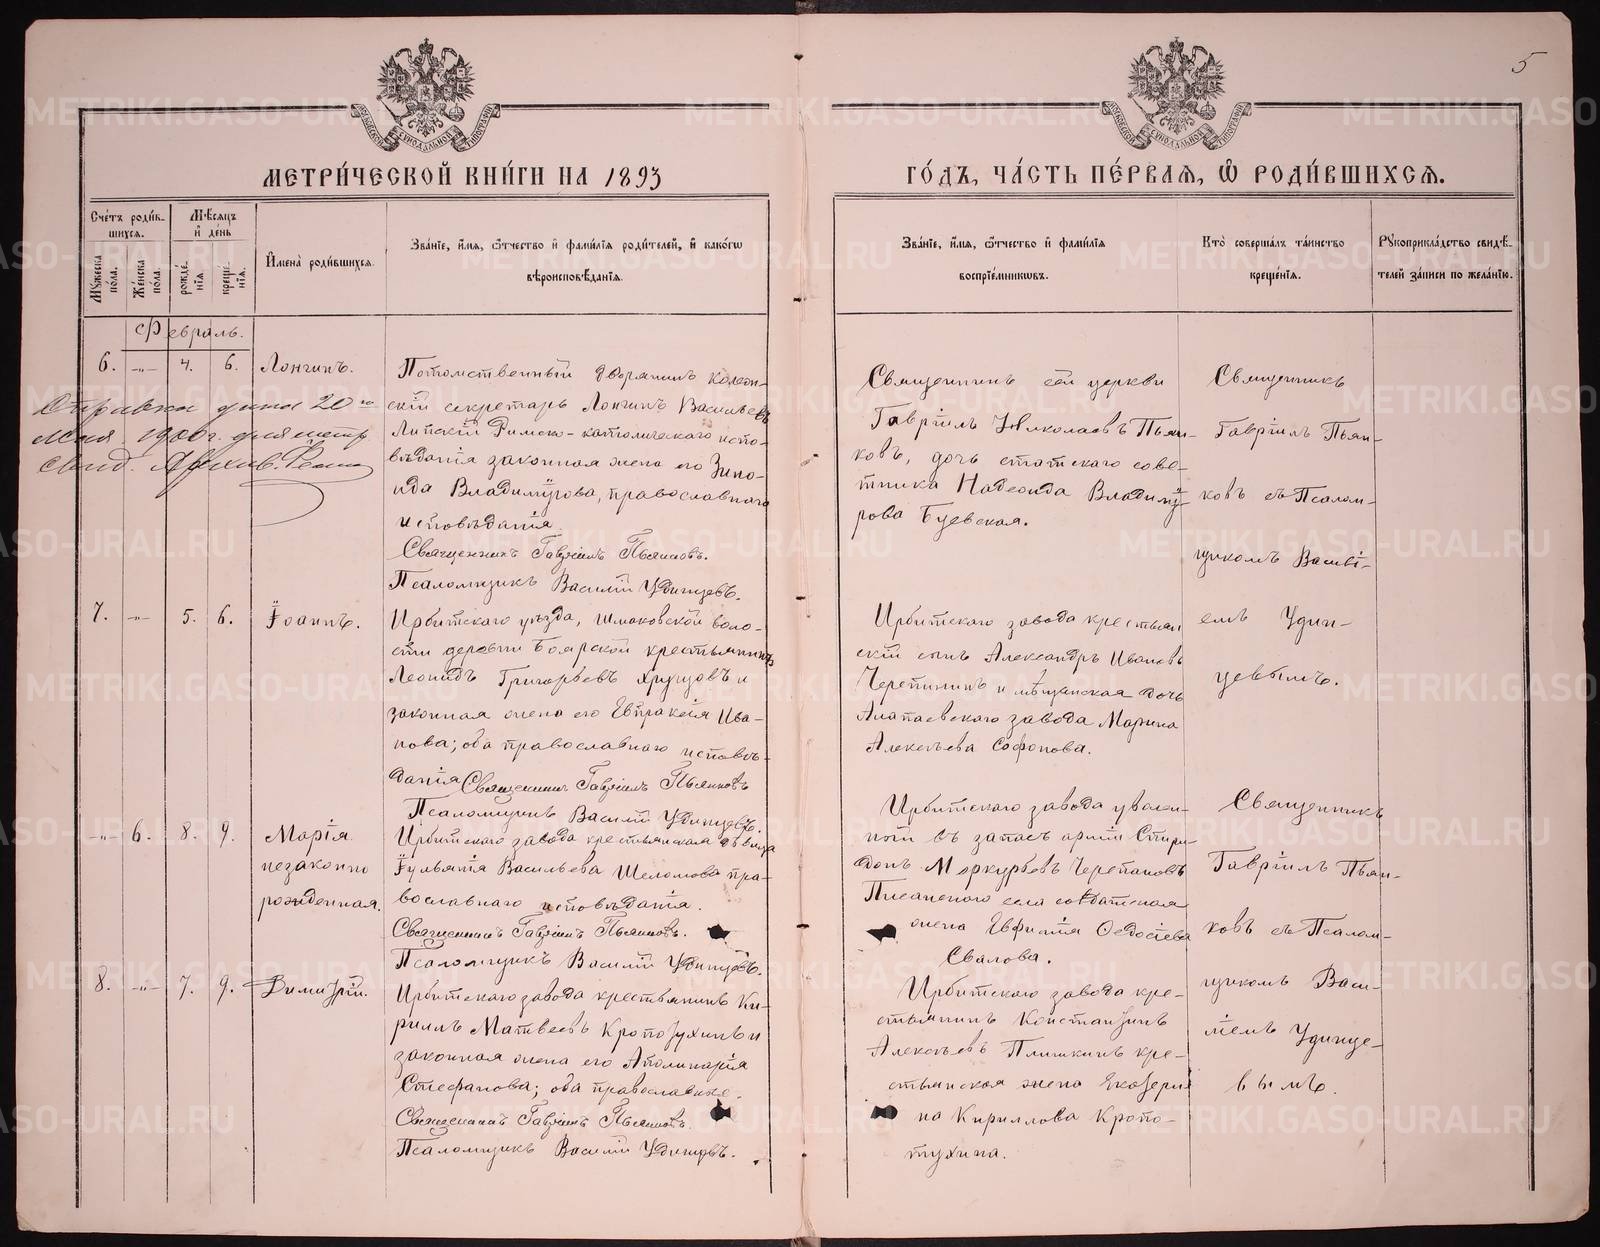 5
МЕТРИ́ЧЕСКОЙ КНИ́ГИ НА 1893
ГО́ДЪ, ЧА́СТЬ ПЕ́РВАЯ, Ѡ РОДИ́ВШИХСЯ.
Сче́тъ роди́в-
шихся.
Мꙋ́жеска по́ла.
Же́нска по́ла.
Мѣ́сяцъ
и де́нь
рожде́-
нїя.
креще́-
нїя.
И҆мена̀ роди́вшихся.
Зва́нїе, и҆́мя, ѻ҆́тчество и҆ фами́лїя роди́телей, и҆ како́гѡ
вѣроисповѣ́данїя.
Зва́нїе, и҆́мя, ѻ҆́тчество и҆ фами́лїя
воспрїе́мниковъ.
Кто̀ соверша́лъ та́инство
креще́нїя.
Рꙋкоприкла́дство свидѣ́-
телей за́писи по жела́нїю.
Февраль.
6. -"- 4. 6. Лонгинъ.
Потомственный дворянинъ коллеж-
скій секретарь Лонгинъ Васильевъ
Липскій Римско-католическаго испо-
вѣданія законная жена его Зино-
ида Владимірова, православнаго
исповѣданія
Священникъ Гавріилъ Пьянковъ.
Псаломщикъ Василій Удинцевъ.
Справка дана 20го
Мая 1900 г. для метр
свид.
Священникъ сей церкви
Гавріилъ Николаевъ Пьян-
ковъ, дочь статскаго совѣ-
тника Надежда Владимі-
рова Буевская.
Священникъ
Гавріилъ Пьян-
ковъ съ Псалом-
щикомъ Василі-
емъ Удин-
цевымъ.
7. -"- 5. 6. Іоаннъ.
Ирбитскаго уѣзда, Шмаковской воло-
сти деревни Боярской крестьянинъ
Леонидъ Григорьевъ Хрущовъ и
законная жена его Евпраксія Ива-
нова; оба православнаго исповѣ-
данія Священникъ Гавріилъ Пьянковъ
Псаломщикъ Василій Удинцевъ.
Ирбитскаго завода крестьян
скій сынъ Александръ Ивановъ
Черепанинъ и мѣщанская дочь
Алапаевскаго завода Марина
Алексѣева Софонова.
-"- 6. 8. 9. Марія
незаконно
рожденная.
Ирбитскаго завода крестьянская дѣвица
Іульянія Васильева Шеломова пра-
вославнаго исповѣданія.
Священникъ Гавріилъ Пьянковъ.
Псаломщикъ Василій Удинцевъ.
Ирбитскаго завода уволен-
ный въ запасъ арміи Спири-
донъ Меркурьевъ Черепановъ
Писанскаго села солдатская
жена Евфимія Ѳедосіева
Свалова.
Священникъ
Гавріилъ Пьян-
ковъ съ Псалом-
щикомъ Васи-
ліемъ Удинце-
вымъ.
8. -"- 7. 9. Димитрій.
Ирбитскаго завода крестьянинъ Ки-
риллъ Матвеевъ Кропотухинъ и
законная жена его Аполинарія
Стефанова; оба православные.
Священникъ Гавріилъ Пьянковъ.
Псаломщикъ Василій Удинцевъ.
Ирбитскаго завода кре-
стьянинъ Константинъ
Алексѣевъ Плишкинъ кре-
стьянская жена Екатери
на Кириллова Кропо-
тухина.